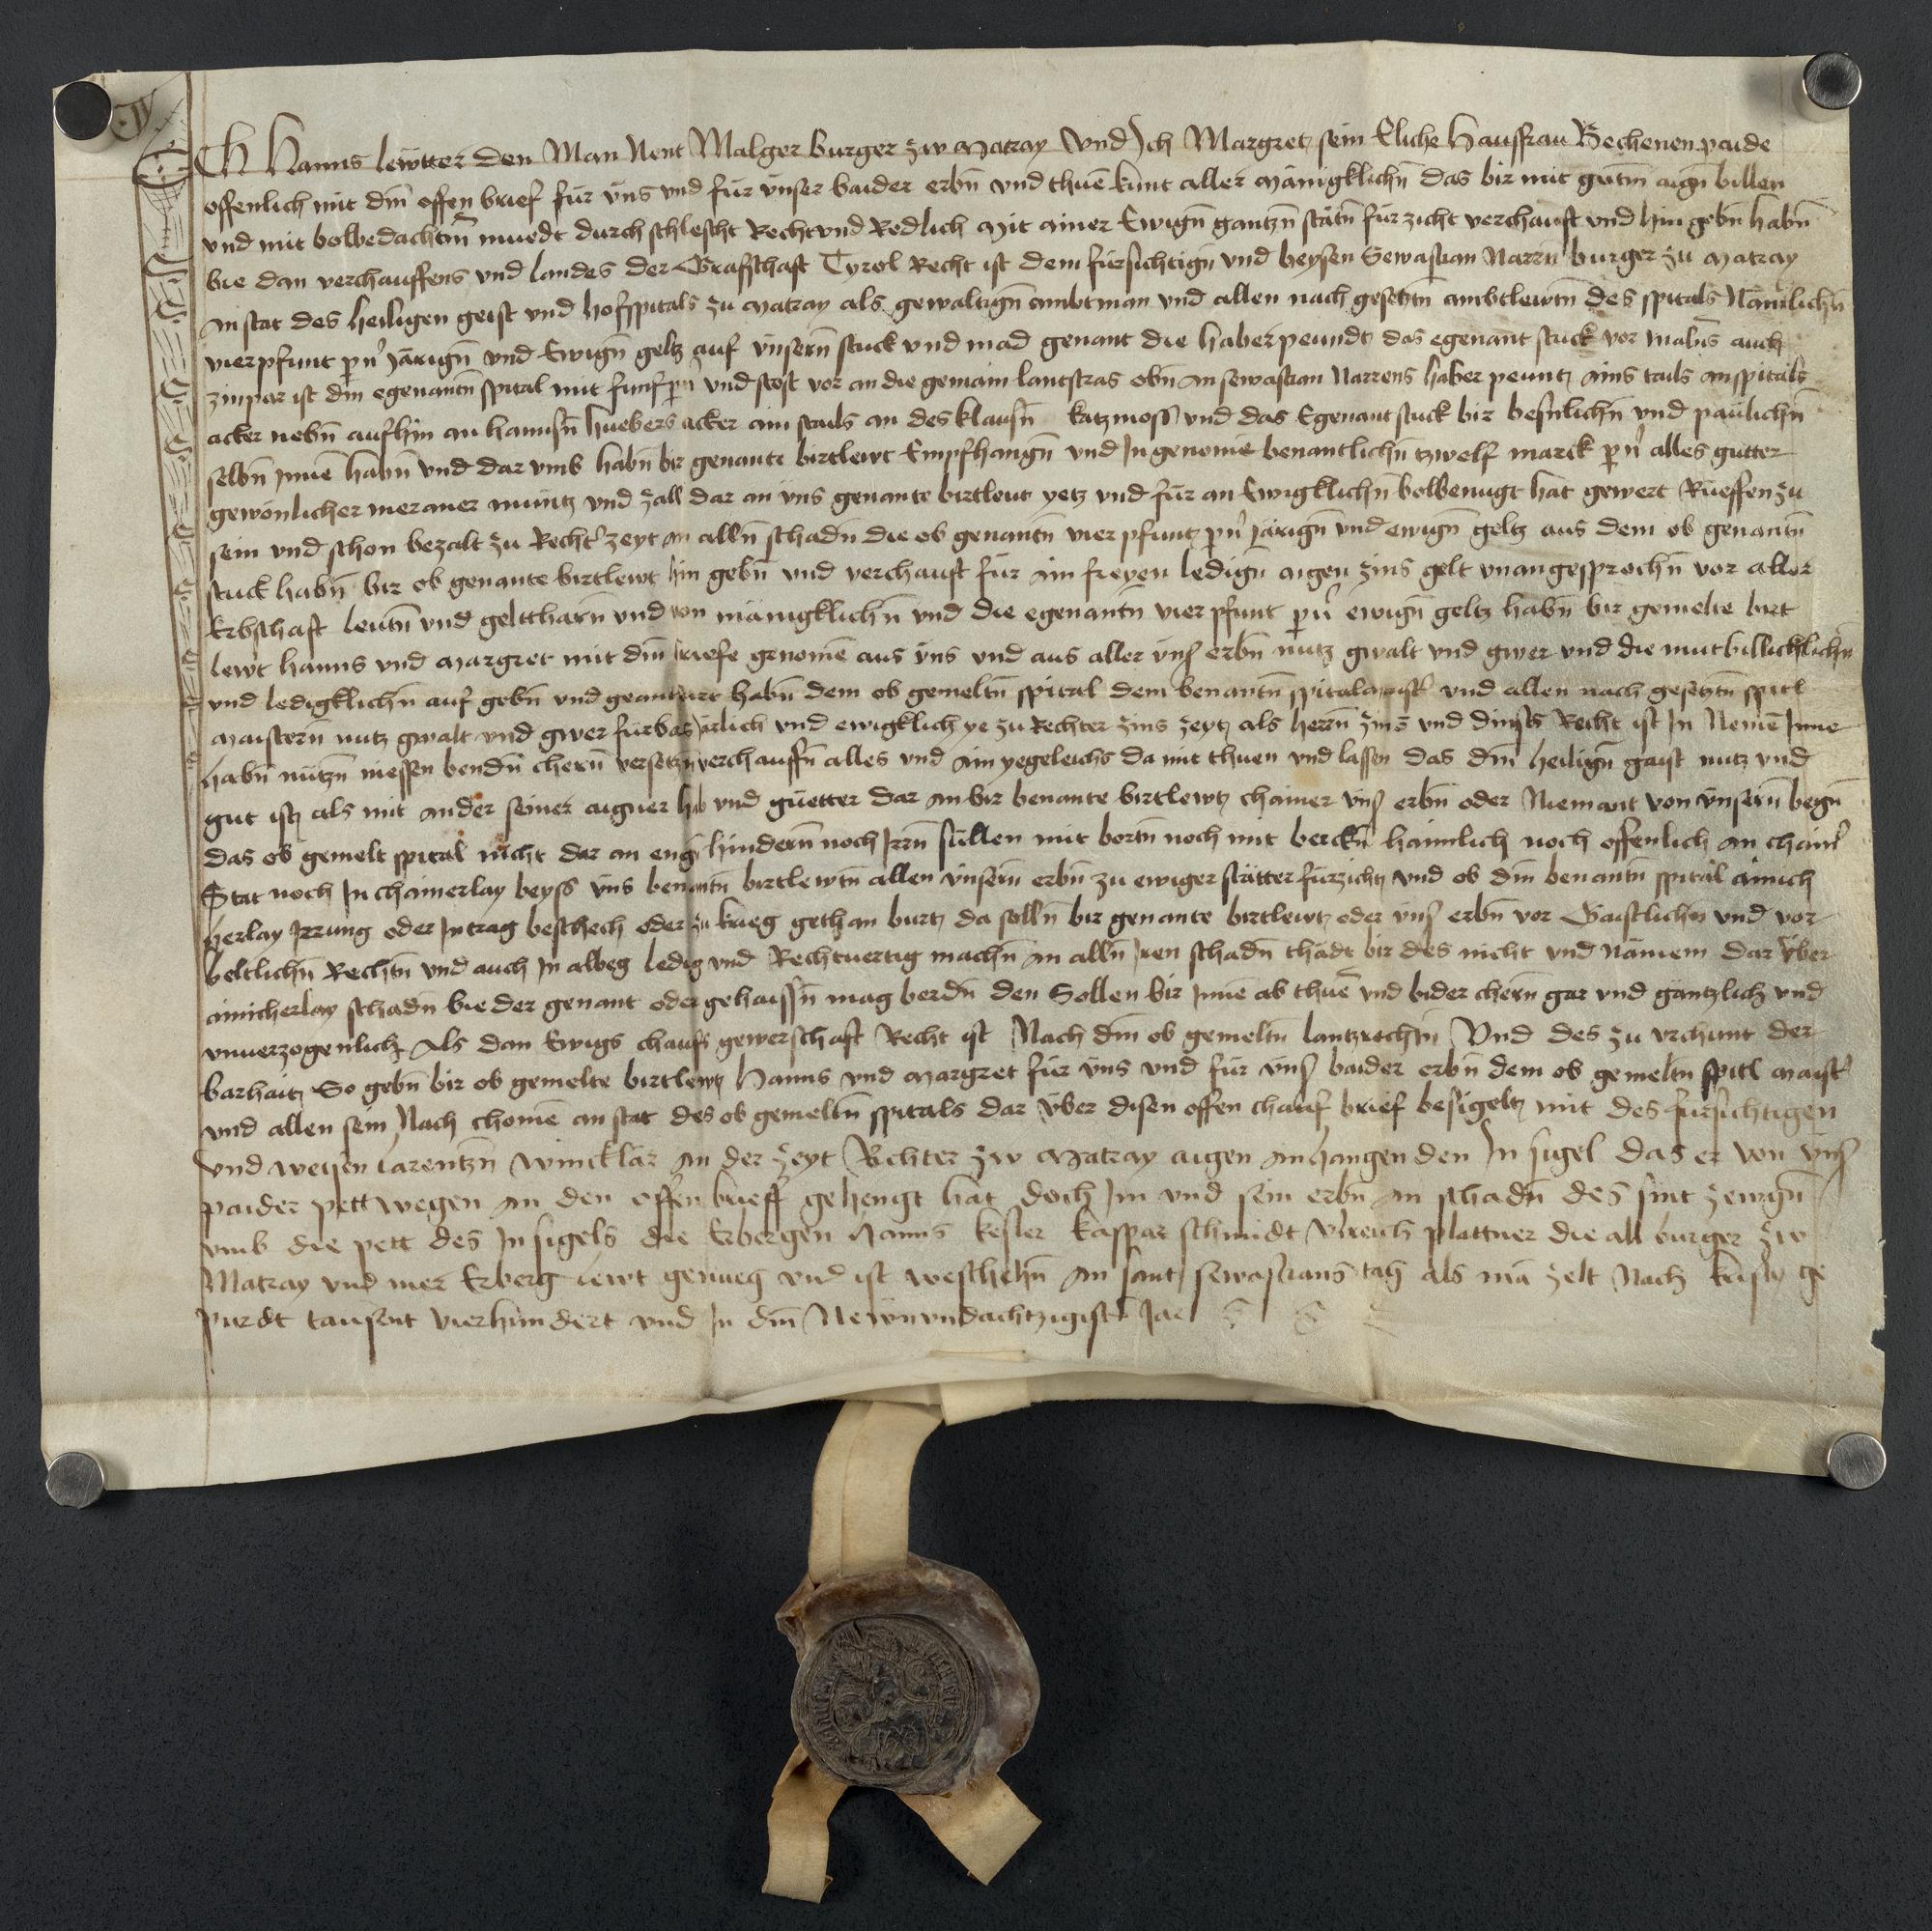 ICH Hanns lewtter den Man Nent Malger burger zw Matray Und Ich Margret sein Eliche Hausfrau Bechenen paide
offenlich mit dm̄ offen brief für vns vnd für vnser baider erbn̄ vnd thuē kunt aller mänigklichn̄ das bir mit gutm̄ aign̄ billen
vnd mit bolbedachtm̄ muedt durch schlescht Recht vnd Redlich Mit ainer Ewign̄ gantzn̄ stätn̄ für zicht verchauft vnd hin gebn̄ habn̄
bie dan verchauffens vnd landes der Grafschaft Tyrol Recht ist dem fürsichtign̄ vnd beysen Sewastian Narrn̄ burger zu Matray
an stat des heiligen geist vnd hofspitals zu Matray als gewaltign̄ ambtman vnd allen nach gesetztn̄ ambtlewtn̄ des spitals Nämlichn̄
vier pfunt pn̄ Järign̄ vnd Ewign̄ geltz auf vnsern̄ stuck vnd mad genant die haberpeundt das egenant stuck vor malns auch
zinpar ist dm̄ egenantn̄ spital mit funf pn̄ vnd stost vor an die gemain lantstras obn̄ an sewastian Narrens haber peuntz ains tails an spitals
acker nebn̄ aufhin an hannsn̄ huebers acker ain tails an des klausn̄ katzmoss vnd das Egenant stuck bir besnlichn̄ vnd paulichn̄
selbn̄ Inne habn̄ vnd dar vmb habn̄ bir genante birtlewt Empfhangn̄ vnd In genomē benantlichn̄ tzwelf marck pn̄ alles gutter
gewönlicher meraner müntz vnd zall dar an vns genante birtleut yetz vnd für an Ewigklichn̄ bolbenugt hat gewert Rueffen zu
sein vnd schon bezalt zu Recht' zeyt an alln̄ schadn̄ die ob genantn̄ vier pfunt pn̄ järign̄ vnd ewign̄ geltz aus dem ob genantn̄
stuck habn̄ bir ob genante birtlewt hin gebn̄ vnd verchauft für ain freyen ledign̄ aigen zins gelt vnangesprochn̄ vor aller
Erbschaft leutn̄ vnd geltthärn̄ vnd von mänigklichn̄ vnd die egenantn̄ vier pfunt pn̄ ewign̄ geltz habn̄ bir gemelte birt
lewt hanns vnd Margret mit dm̄ briefe genomē aus vns vnd aus aller vnser erbn̄ nutz gwalt vnd gwer vnd die mutbillicklichn̄
vnd ledigklichn̄ auf gebn̄ vnd geantburt habn̄ dem ob gemeltn̄ spital dem benantn̄ spitalmaist' vnd allen nach gesetztn̄ spitl
maistern̄ nutz gwalt vnd gwer fürbas järlich vnd ewigklich ye zu Rechter zins zeytz als herrn̄ zins vnd dinsts Recht ist In Nemē Inne
habn̄ nützn̄ niessen bendn̄ chern̄ versetzn̄ verchauffn̄ alles vnd ain yegeleichs da mit thuen vnd lassen das dm̄ heilign̄ gaist nutz vnd
gut istz als mit ander seiner aigner hab vnd güetter dar an bir benante birtlewtz chainer vnser erbn̄ oder Niemant von vnsern̄ begn̄
das ob gemelt spital nicht dar an eng hindern̄ noch Irrn̄ süllen mit bortn̄ noch mit berckn̄ haimlich noch offenlich an chain'
Stat noch In chainerlay beyss vns benantn̄ birtlewtn̄ allen vnsern̄ erbn̄ zu ewiger stätter fürzichtz vnd ob dm̄ benantn̄ spital ainich
herlay Irrung oder Intrag beschech oder zu krieg gethan burtz da solln̄ bir genante birtlewtz oder vnser erbn̄ vor Gaistlichn̄ vnd vor
beltlichn̄ Rechtn̄ vnd auch In albeg ledig vnd Rechtuertig machn̄ an alln̄ Iren schadn̄ thädt bir des nicht vnd nämem dar über
ainicherlay schadn̄ bie der genant oder gehaissn̄ mag berdn̄ den Sollen bir Inne ab thuē vnd bider chern̄ gar vnd gantzlich vnd
vnuerzogenlich Als dan Ewigs chaufs gewerschaft Recht ist Nach dm̄ ob gemeltn̄ lantzrechtn̄ Vnd des zu vrchunt der
barhaitz So gebn̄ bir ob gemelte birtlewtz Hanns vnd Margret für vns vnd für vnser baider erbn̄ dem ob gemeltn̄ spitl maist'
vnd allen sein Nach chomē an stat des ob gemeltn̄ spitals dar über disen offen chauf brief besigeltz mit des fürsichtigen
vnd weysen larentzn̄ wincklär an der zeyt Richter zw Matray aigen anhangenden In sigel das er von vnser
paider pett wegen an den offen brieff gehengt hat doch Im vnd sein erbn̄ an schadn̄ des sint zewgn̄
vmb die pett des Insigels die Erbergen Hanns kesler kaspar schmidt vlreich plattner die all burger zw
Matray vnd mer Erberg lewt genueg vnd ist weschehn̄ an sant sewastians tag als mā zelt Nach krist ge
purdt tausent vierhundert vnd In dm̄ Newnvndachtzigistn̄ Jar